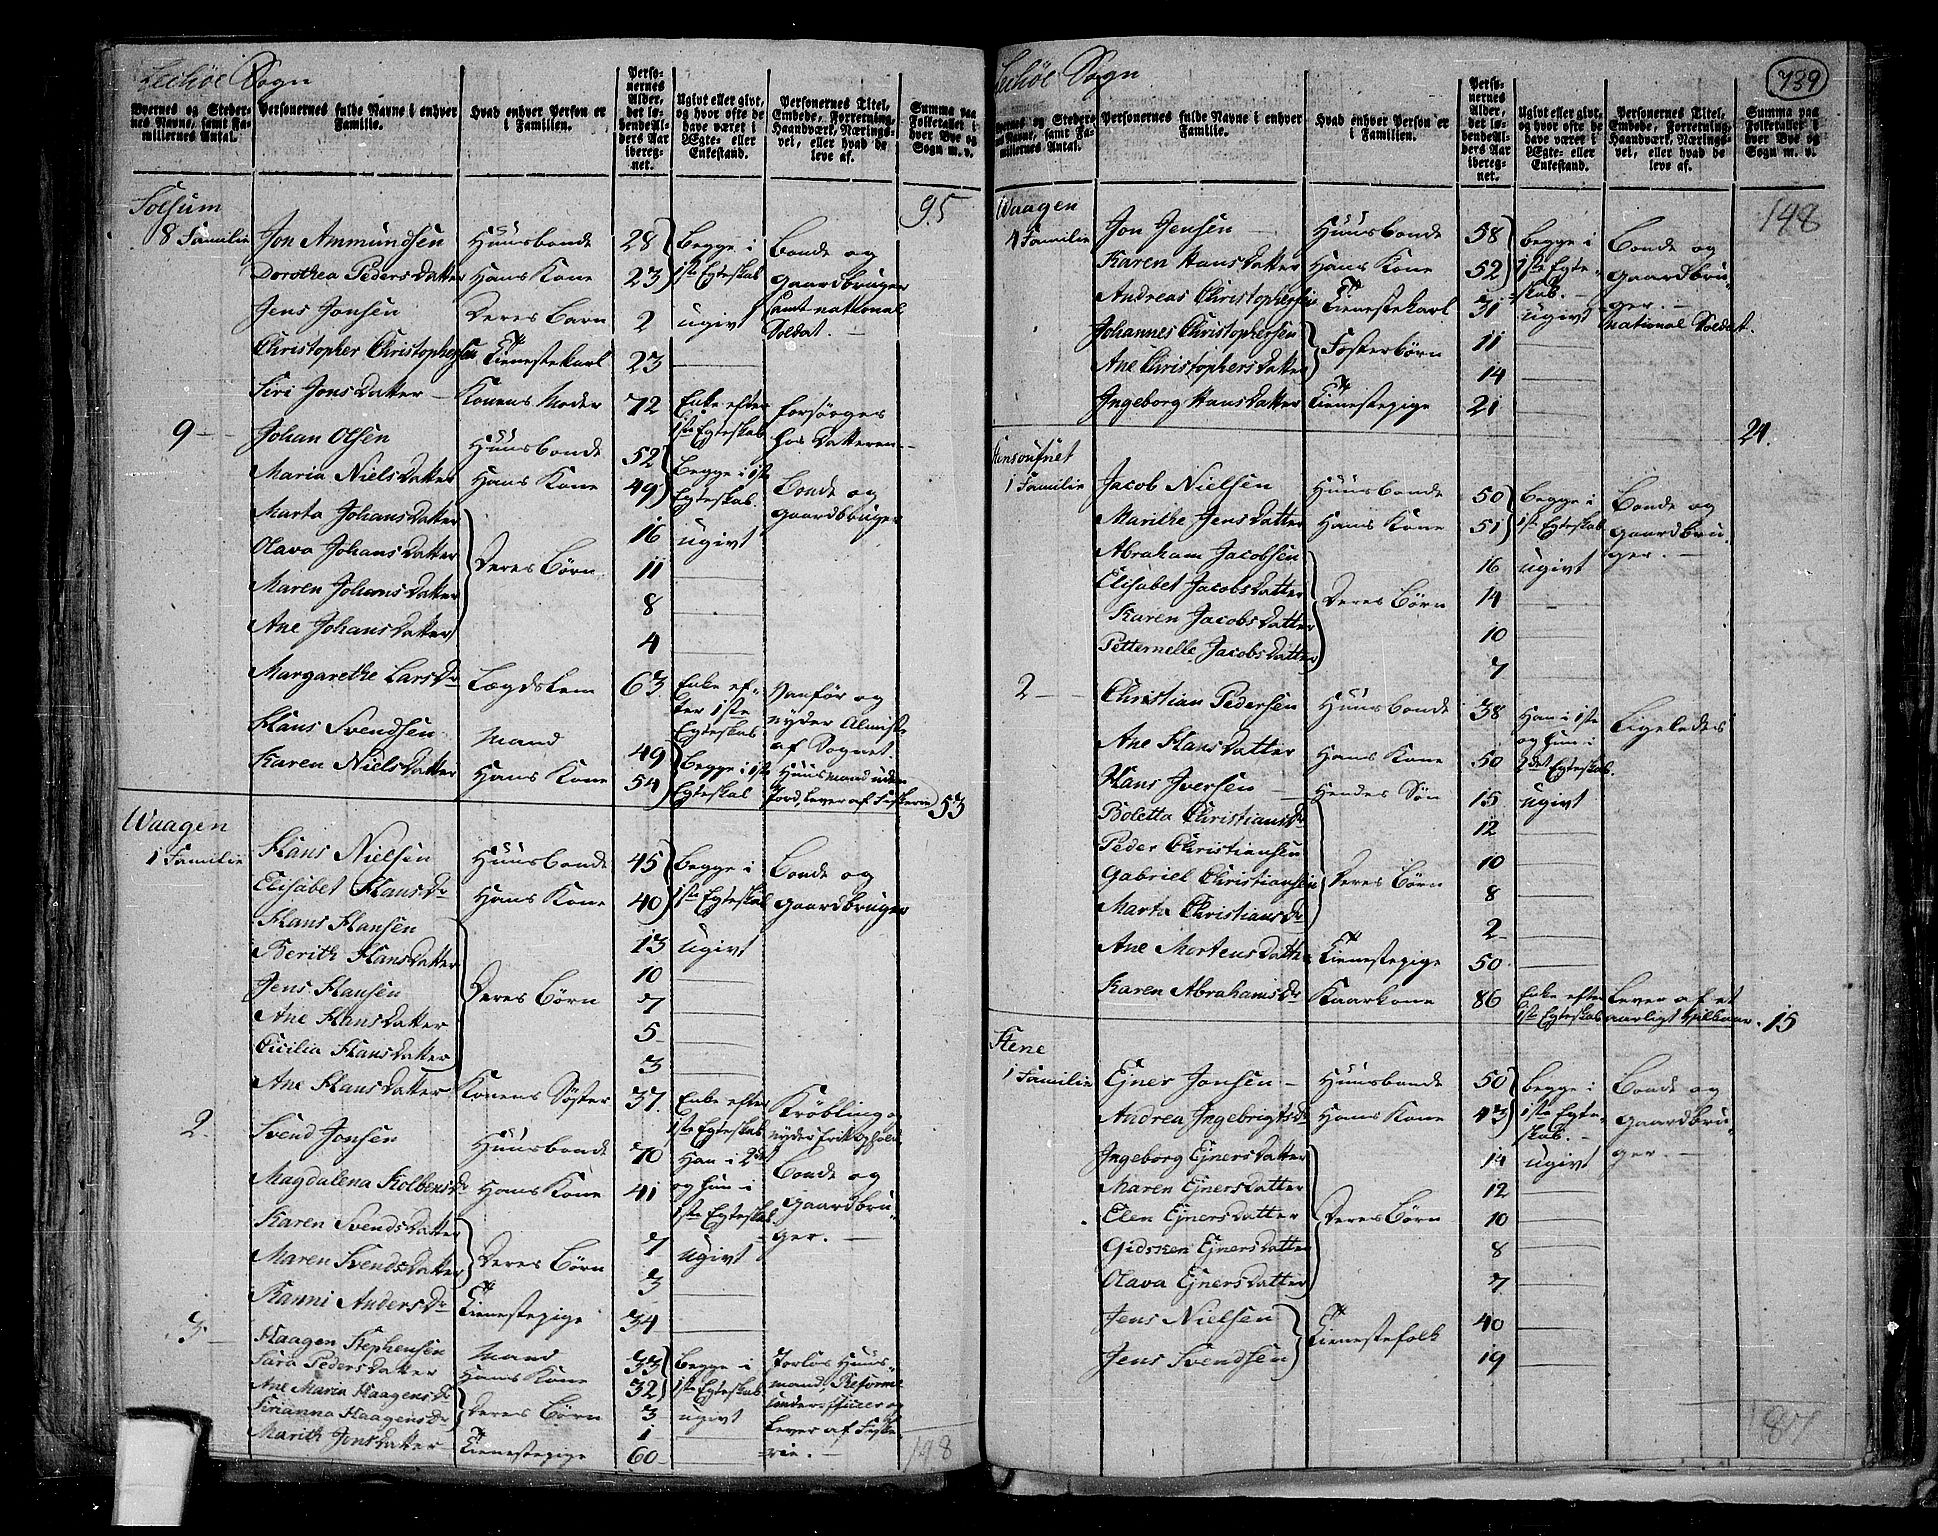 Leehöe Sogn
Byernes og Steder-
nes Navne, samt Fa-
miliernes Antal.
Personernes fulde Navne i enhver
Familie.
Hvad enhver Person er
i Familien.
Perso-
nernes
Alder,
det lø-
bende Al-
ders Aar
ibereg-
net.
Ugivt eller givt,
og hvor ofte de
have været i
Ægte- eller
Enkestand.
Personernes Titel,
Embede, Forretning,
Haandværk, Nærings-
vei, eller hvad de
leve af.
Summa paa
Folketallet i
hver Bye og
Sogn m. v.
Solsum 95
8 Familie Jon Ammundsen Huusbonde 28 begge i 1ste Egteskab bonde og gaardbruger samt national Soldat.
Dorothea Pedersdatter Hans Kone 23
Jens Jonsen Deres barn 2 ugivt
Christopher Christophersen Tienestekarl 23
Siri Jonsdatter Konens Moder 72 Enke efter 1ste Egteskab forsørges hos datteren
9 Johan Olsen Huusbonde 52 begge i 1ste Egteskab bonde og gaardbruger
Maria Nielsdatter Hans Kone 49
Marta Johansdatter Deres børn 16 ugivt
Olava Johansdatter 11
Maren Johansdatter 8
Ane Johansdatter 4
Margarethe Larsdr Lægdslem 63 Enke efter 1ste Egteskab Vanfør og nyder Almisse af Sognet
Hans Svendsen Mand 49 begge i 1ste Egteskab Huusmand uden Jord, lever af Fiskerie
Karen Nielsdatter Hans Kone 54 53
Waagen
1 Familie Hans Nielsen Huusbonde 45 begge i 1ste Egteskab bonde og gaardbruger
Elisabet Hansdr Hans Kone 40
Hans Hansen Deres børn 13 ugivt
Berith Hansdatter 10
Jens Hansen 7
Ane Hansdatter 5
Cicilia Hansdatter 3
Ane Hansdatter Konens Søster 37 Enke efter 1ste Egteskab Krøbling og nyder
2 Svend Jonsen Huusbonde 70 Han i 2det og hun i 1ste Egteskab bonde og gaardbruger.
Magdalena Kolbensdr Hans Kone 41
Karen Svendsdatter Deres børn 7 ugivt
Maren Svendsdatter 3
Ranni Andersdr Tienestepige 34
3 Haagen Stephensen Mand 33 begge i 1ste Egteskab Jorløs Huusmand, Reforme underofficer og lever af Fiskerie.
Sara Pedersdatter Hans Kone 32
Ane Maria Haagensdr Deres børn 3 ugivt
Sirianna Haagensdr 1
Marith Jonsdatter Tienestepige 60
148
Leehöe Sogn 739
Byernes og Steder-
nes Navne, samt Fa-
miliernes Antal.
Personernes fulde Navne i enhver
Familie.
Hvad enhver Person er
i Familien.
Perso-
nernes
Alder,
det lø-
bende Al-
ders Aar
ibereg-
net.
Ugivt eller givt,
og hvor ofte de
have været i
Ægte- eller
Enkestand.
Personernes Titel,
Embede, Forretning,
Haandværk, Nærings-
vei, eller hvad de
leve af.
Summa paa
Folketallet i
hver Bye og
Sogn m. v.
Waagen 148
4 Familie Jon Jensen Huusbonde 58 begge i 1ste Egteskab. bonde og gaardbruger.
Karen Hansdatter Hans Kone 52
Andreas Christophersen Tienestekarl 31 ugivt national Soldat.
Johannes Christophersen Fosterbørn 11
Ane Christophersdatter 14
Ingeborg Hansdatter Tienestepige 21
24.
1 Familie Jacob Nielsen Huusbonde 50 begge i 1ste Egteskab bonde og gaardbruger.
Marithe Jensdatter Hans Kone 51
Abraham Jacobsen Deres børn 16 ugivt
Elisabet Jacobsdatter 14
Karen Jacobsdatter 10
Petternelle Jacobsdatter 7
2 Christian Pedersen Huusbonde 38 Han i 1ste og hun i 2det Egteskab. Ligeledes
Ane Hansdatter Hans Kone 50
Hans Iversen Hendes Søn 15 ugivt
Boletta Christiansdr Deres børn 12
Peder Christiansen 10
Gabriel Christiansen 8
Marta Christiansdr 2
Ane Mortensdatter Tienestepige 50
Karen Abrahamsdr Kaarkone 86 Enke efter 1ste Egteskab Lever af et aarligt Vilkaar. 15
Stene
1 Familie Ejner Jonsen Huusbonde 50 begge i 1ste Egteskab. bonde og gaardbruger.
Andrea Ingebrigtsdr Hans Kone 43
Ingeborg Ejnersdatter Deres børn 14 ugivt
Maren Ejnersdatter 12
Elen Ejnersdatter 10
Gidsken Ejnersdatter 8
Olava Ejnersdatter 7
Jens Nielsen Tienestefolk 40
Jens Svendsen 19
187